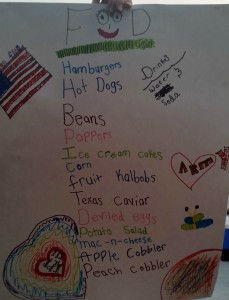 FOOD
Hamburgers
Hot Dogs
Drinks
Water
Soda
Beans
Poppers
Ice cream cakes
Corn
fruit Kalbobs
Texas Caviar
Deviled eggs
Potato Salad
mac-n-cheese
Apple Cobbler
Peach cobbler